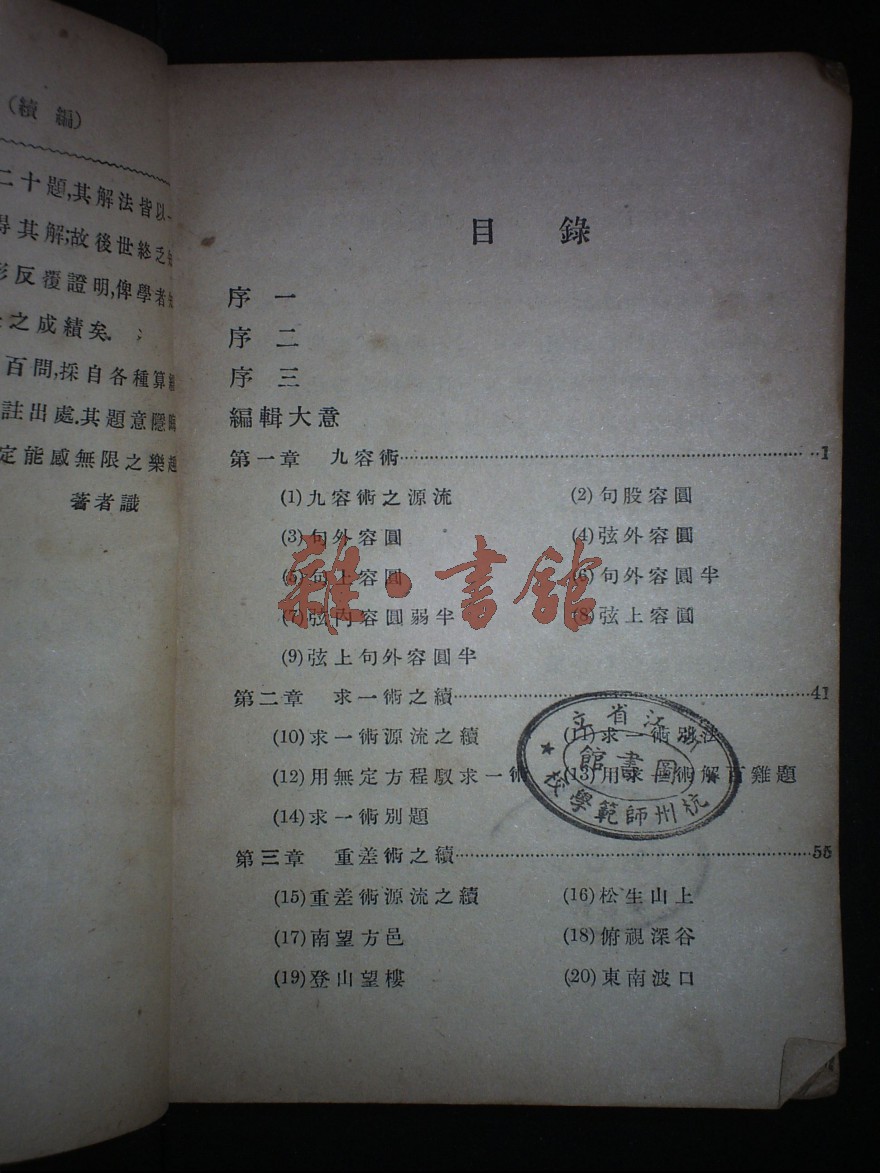 （續編）
二十題，其解法皆以一
得其解；故後世終之
形反覆證明，俾學者
之成績矣．
百問，採自各種算
註出處．其題意隱
定能感無限之樂趣
著者識
目錄
序一
序二
序三
編輯大意
第一章 九容術……1
(1)九容術之源流 (2)句股容圓
(3)句外容圓 (4)弦外容圓
(5)句上容圓 (6)句外容圓半
(7)弦內容圓弱半 (8)弦上容圓
(9)弦上句外容圓半
第二章 求一術之續……41
(10)求一術源流之續 (11)求一術別法
(12)用無定方程馭求一術 (13)用求一術解百雞題
(14)求一術別題
第三章 重差術之續……55
(15)重差術源流之續 (16)松生山上
(17)南望方邑 (18)俯視深谷
(19)登山望樓 (20)東南波口
雜·書館
浙江省立
圖書館
杭州師範學校